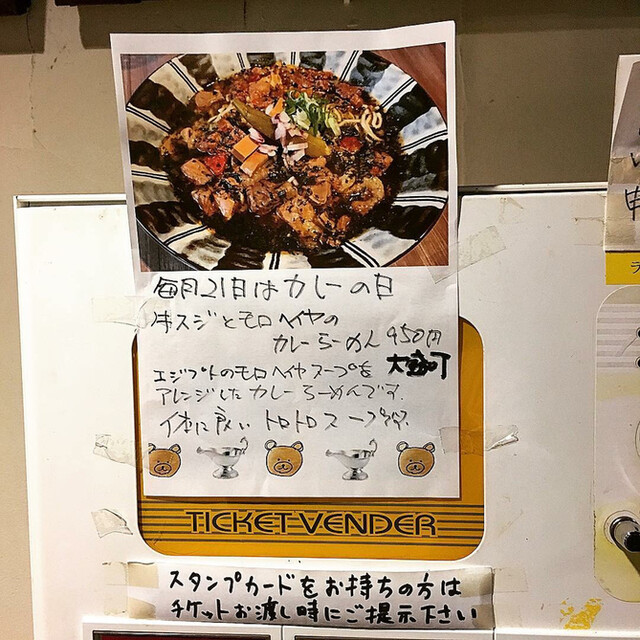 毎月21日はカレーの日
牛スジとモロヘイヤの
カレーらーめん 950円
大盛可
エジプトのモロヘイヤスープを
アレンジしたカレーらーめんです。
体に良いトロトロスープです。
TICKET VENDER
スタンプカードをお持ちの方は
チケットお渡し時にご提示下さい